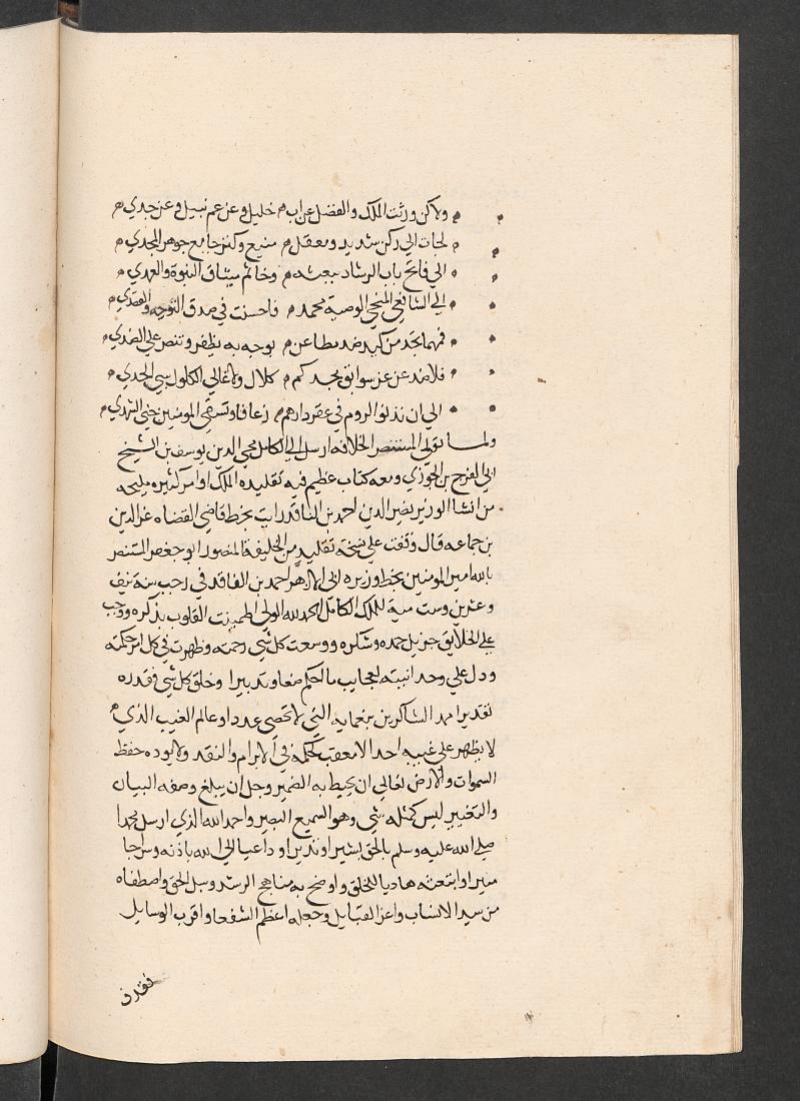 ولاكن ورثت الملك والفضل عن اب خليل وعن عم نبيل وعن جدي
لجات الي ركن شديد ومعقل منيع وكنز جامع جوهر المجدي
الي فاتح باب الرشاد ببعثه وخاتم ميثاق النبوة والعهدي
الي الشافعي المنجي الوصية محمد فاحسنت في صدق التوجه والقصدي
فمهما نجد من كيد ضد مطاعن بوجه به يظفر وتنصر علي الضدي
فلا ضد عن عز سوابق مجدكم كلال ولا غالي الكلول شبي الحدي
الي ان نذلوا الروم في عقر دارهم زعافا وتسقي المومنين جني الشهدي
ولما تولي المستنصر الخلافه ارسل الي الكامل محيي الدين يوسف بن الشيخ
ابي الفرج بن الجوزي ومعه كتاب عظيم فيه تقليده الملك اوامر كثيره مليحه
من انشا الوزير نصير الدين احمد بن الناقد رايت بخط قاضي القضاه عز الدين
بن جماعه قال وقفت علي نسخة تقليد من الخليفة المنصور ابو جعفر المستنصر
بالله امير المومنين بخط وزيره ابي الازهر احمد بن الفاقد في رجب سنة نيف
وعشرين وست مية للملك الكامل الحمد لله الولي اطمينت القلوب بذكره ووجب
علي الخلايق جزيل حمده وشكره ووسعت كل شي رحمته وظهرت في كل امر حكمته
ودل علي وحدانيته لعجايب ما احكم صنعا وتدبيرا وخلق كل شي فقدره
تقديرا ممد الشاكرين بنعمايه التي لا تحصي عددا وعالم الغيب الذي
لا يظهر علي غيبه احد الا معقب لحكمه في الابرام والنقد ولا يوده حفظ
السموات والارض تعالي ان يحيط به الضمير وجل ان يبلغ وصفه البيان
والتفسير ليس كمثله شي وهو السميع البصير واحمد الله الذي ارسل محمدا
صلي الله عليه وسلم بالحق بشيرا ونذيرا وداعيا الي الله باذنه وسراجا
منيرا وابتعثه هاديا للخلق واوضح به مناهج الرشد وسبل الحق واصطفاه
من سيد الانساب واعز القبايل وجعله اعظم الشفعا واقرب الوسايل
فقدف